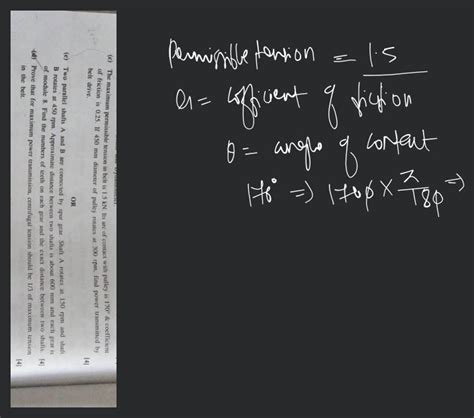 (c) The maximum permissible tension in belt is 1.5 kN. Its arc of contact with pulley is 170° & coefficient
of friction is 0.25. If 450 mm diameter of pulley rotates at 300 rpm, find power transmitted by
belt drive. [4]
OR
(c) Two parallel shafts A and B are connected by spur gear. Shaft A rotates at 150 rpm and shaft
B rotates at 450 rpm. Approximate distance between two shafts is about 600 mm and each gear is
of module 8. Find the numbers of teeth on each gear and the exact distance between two shafts. [4]
(d) Prove that for maximum power transmission, centrifugal tension should be 1/3 of maximum tension
in the belt. [4]
permissible tension = 1.5
= cofficient of friction
θ = angle of contant
170° ⇒ 170 × π/180 ⇒